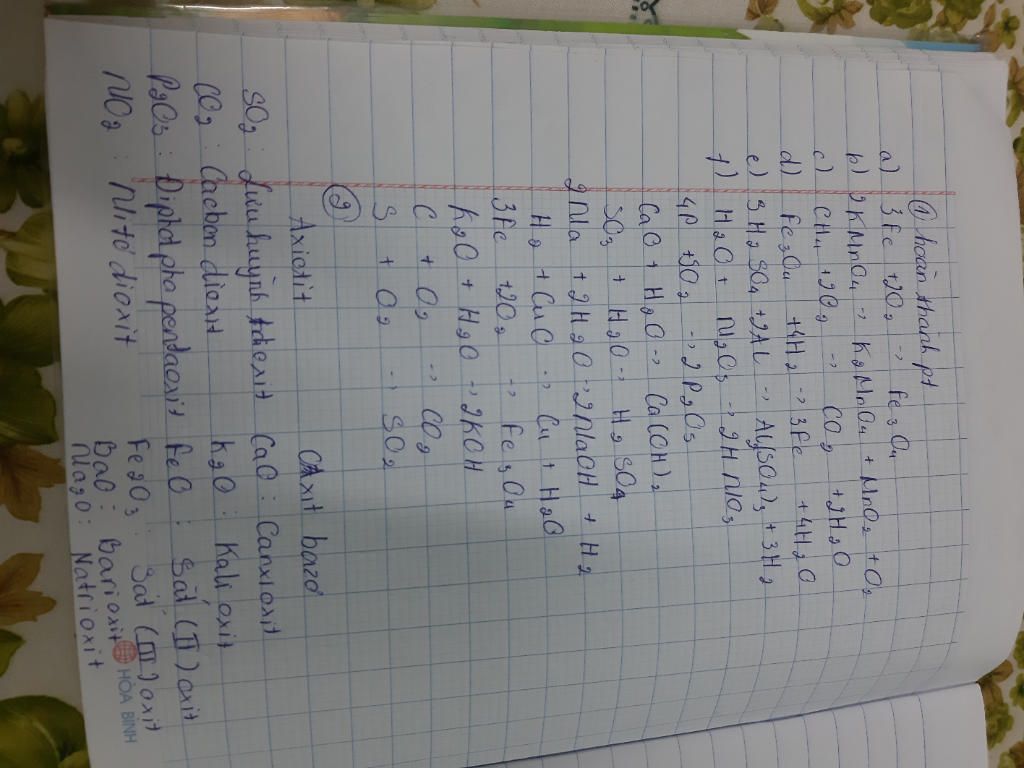 ① hoàn thành pt
a) 3Fe + 2O2 -> Fe3O4
b) 2KMnO4 -> K2MnO4 + MnO2 + O2
c) CH4 + 2O2 -> CO2 + 2H2O
d) Fe3O4 + 4H2 -> 3Fe + 4H2O
e) 3H2SO4 + 2Al -> Al2(SO4)3 + 3H2
f) H2O + N2O5 -> 2HNO3
4P + 5O2 -> 2P2O5
CaO + H2O -> Ca(OH)2
SO3 + H2O -> H2SO4
2Na + 2H2O -> 2NaOH + H2
H2 + CuO -> Cu + H2O
3Fe + 2O2 -> Fe3O4
K2O + H2O -> 2KOH
C + O2 -> CO2
S + O2 -> SO2
②
Axioxit Oxit bazơ
SO2 : Lưu huỳnh đioxit CaO : Canxioxit
CO2 : Cacbon dioxit K2O : Kali oxit
P2O5 : Điphotpho pendaoxit FeO : Sắt (II) oxit
NO2 : Nitơ dioxit Fe2O3 : Sắt (III) oxit
BaO : Bari oxit
Na2O : Natri oxit
HOA BINH